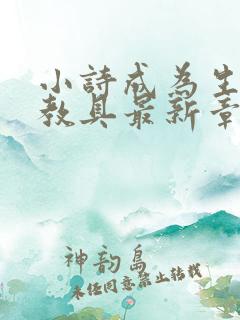 小詩成為生
教具最新章
神韵岛
未经同意禁止转载